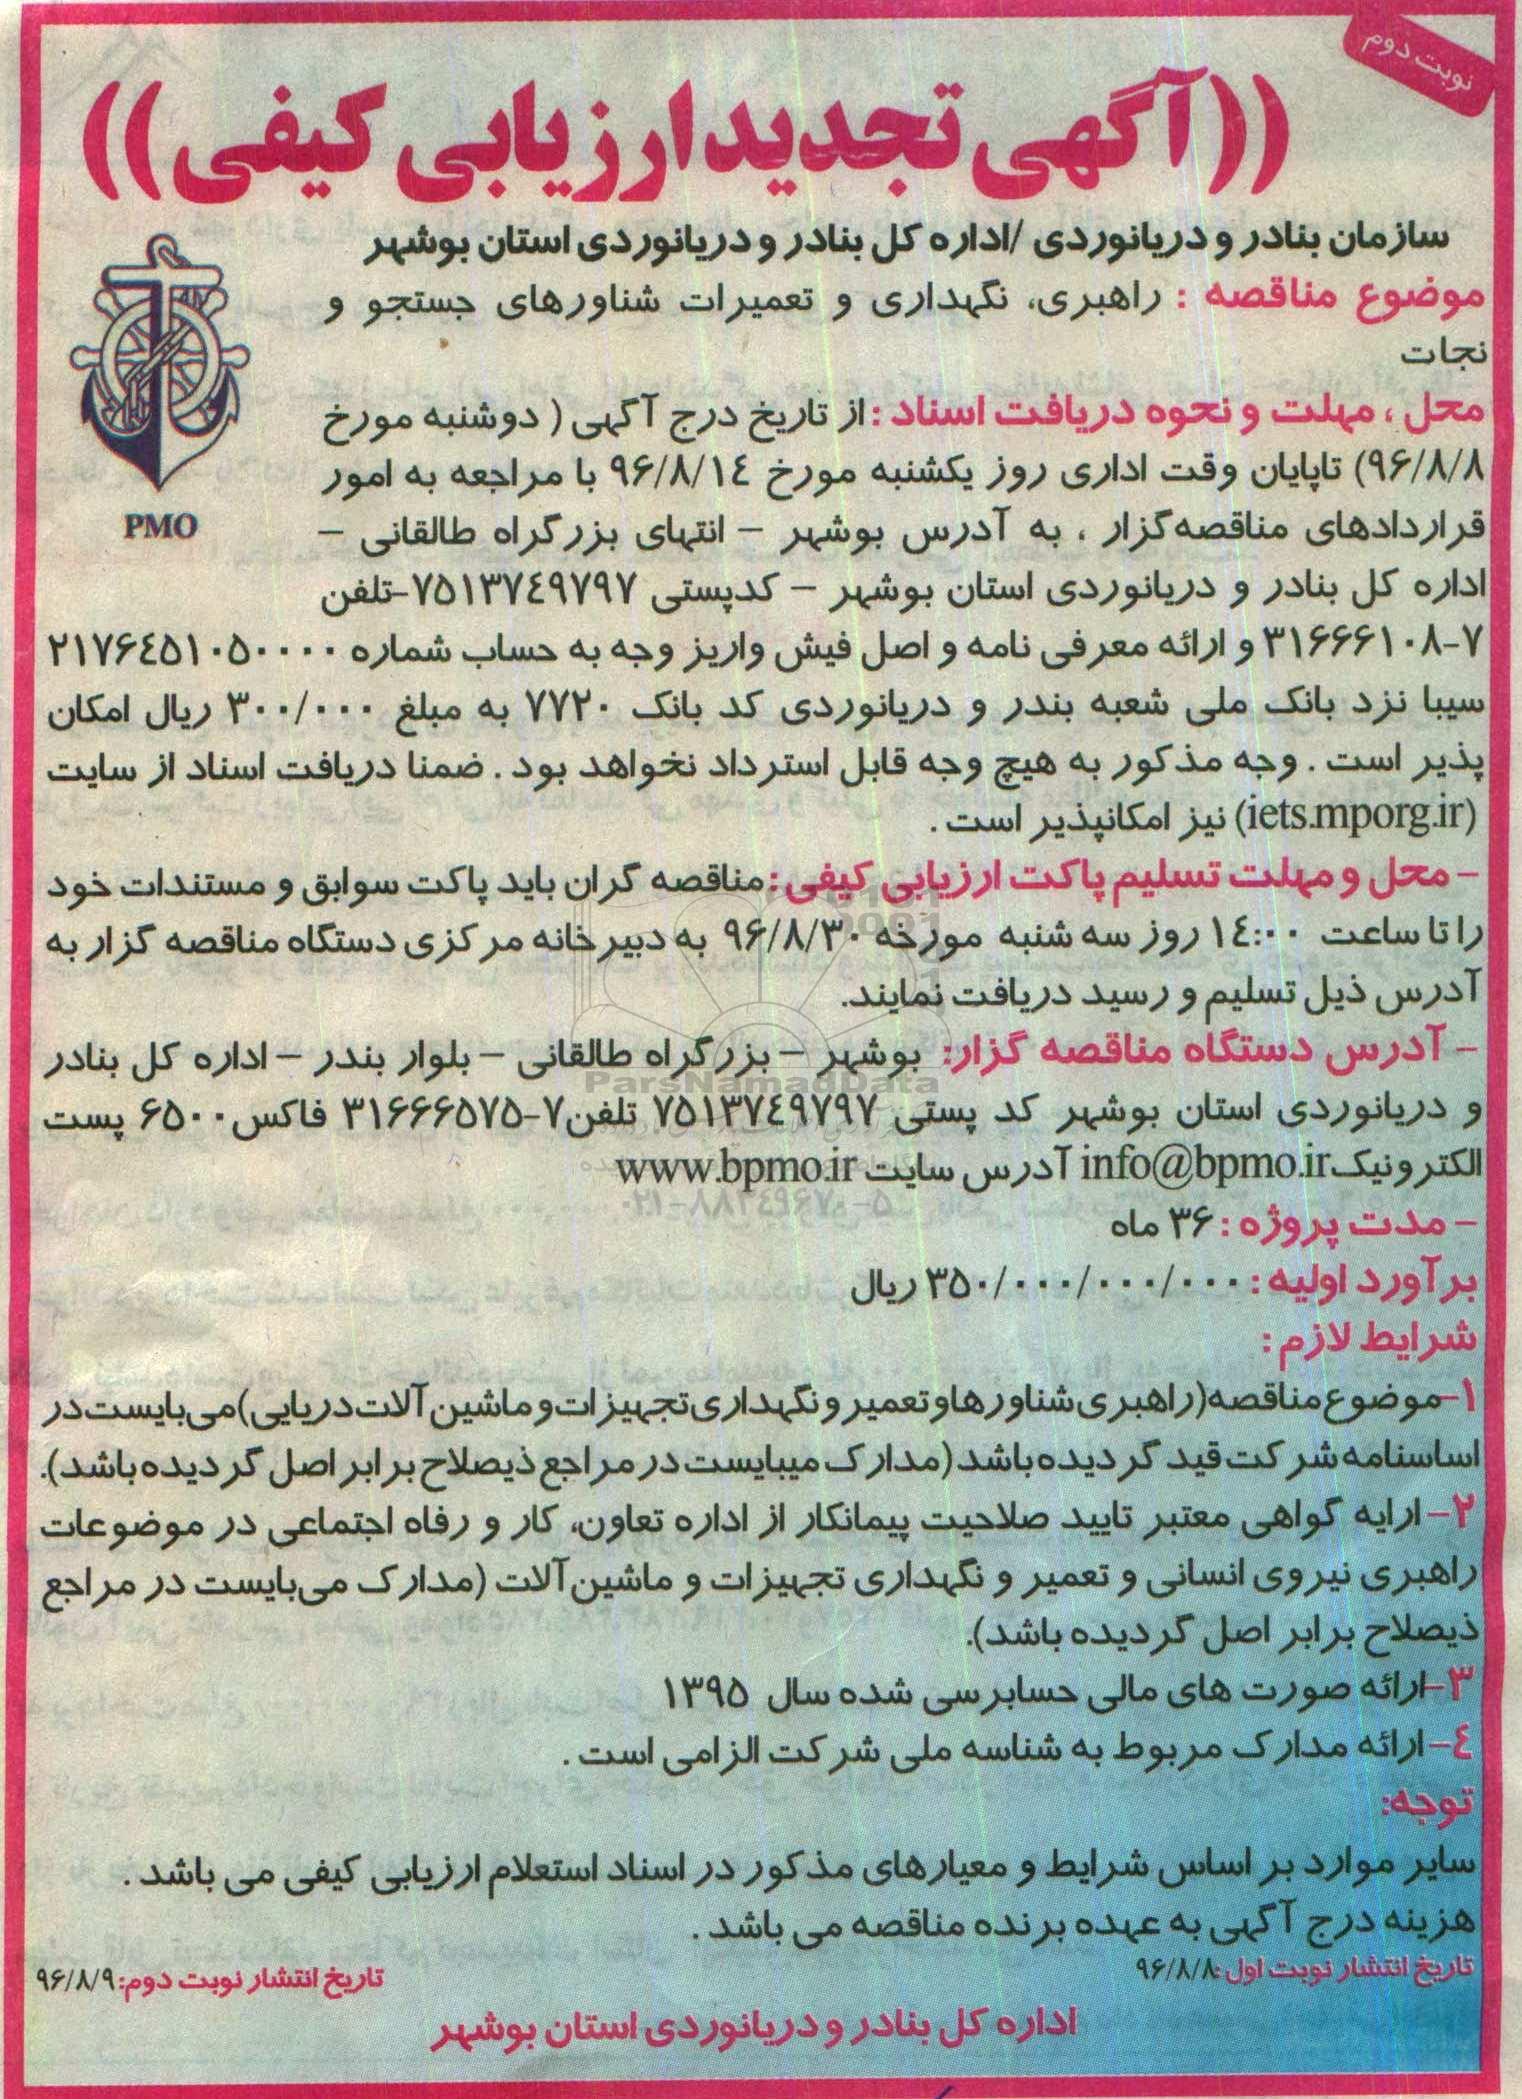 نوبت دوم
((آگهی تجدید ارزیابی کیفی))
سازمان بنادر و دریانوردی /اداره کل بنادر و دریانوردی استان بوشهر
موضوع مناقصه : راهبری، نگهداری و تعمیرات شناورهای جستجو و
نجات
محل ، مهلت و نحوه دریافت اسناد : از تاریخ درج آگهی ( دوشنبه مورخ
۹۶/۸/۸) تاپایان وقت اداری روز یکشنبه مورخ ۹۶/۸/۱٤ با مراجعه به امور
قراردادهای مناقصه‌گزار ، به آدرس بوشهر – انتهای بزرگراه طالقانی –
اداره کل بنادر و دریانوردی استان بوشهر – کدپستی ۷۵۱۳۷٤۹۷۹۷-تلفن
PMO
۳۱۶۶۶۱۰۸-۷ و ارائه معرفی نامه و اصل فیش واریز وجه به حساب شماره ۲۱۷۶٤۵۱۰۵۰۰۰۰
سیبا نزد بانک ملی شعبه بندر و دریانوردی کد بانک ۷۷۲۰ به مبلغ ۳۰۰/۰۰۰ ریال امکان
پذیر است . وجه مذکور به هیچ وجه قابل استرداد نخواهد بود . ضمنا دریافت اسناد از سایت
(iets.mporg.ir) نیز امکانپذیر است .
- محل و مهلت تسلیم پاکت ارزیابی کیفی : مناقصه گران باید پاکت سوابق و مستندات خود
را تا ساعت ۱٤:۰۰ روز سه شنبه مورخه ۹۶/۸/۳۰ به دبیرخانه مرکزی دستگاه مناقصه گزار به
آدرس ذیل تسلیم و رسید دریافت نمایند.
- آدرس دستگاه مناقصه گزار: بوشهر – بزرگراه طالقانی – بلوار بندر – اداره کل بنادر
و دریانوردی استان بوشهر کد پستی ۷۵۱۳۷٤۹۷۹۷ تلفن۷-۳۱۶۶۶۵۷۵ فاکس۶۵۰۰ پست
الکترونیکinfo@bpmo.ir آدرس سایت www.bpmo.ir
ParsNamadData
- مدت پروژه : ۳۶ ماه
برآورد اولیه : ۳۵۰/۰۰۰/۰۰۰/۰۰۰ ریال
شرایط لازم :
۱-موضوع مناقصه(راهبری شناورها و تعمیر و نگهداری تجهیزات و ماشین آلات دریایی)می‌بایست در
اساسنامه شرکت قید گردیده باشد (مدارک میبایست در مراجع ذیصلاح برابر اصل گردیده باشد).
۲- ارایه گواهی معتبر تایید صلاحیت پیمانکار از اداره تعاون، کار و رفاه اجتماعی در موضوعات
راهبری نیروی انسانی و تعمیر و نگهداری تجهیزات و ماشین‌آلات (مدارک می‌بایست در مراجع
ذیصلاح برابر اصل گردیده باشد).
۳-ارائه صورت های مالی حسابرسی شده سال ۱۳۹۵
٤- ارائه مدارک مربوط به شناسه ملی شرکت الزامی است .
توجه:
سایر موارد بر اساس شرایط و معیارهای مذکور در اسناد استعلام ارزیابی کیفی می باشد .
هزینه درج آگهی به عهده برنده مناقصه می باشد .
تاریخ انتشار نوبت اول:۹۶/۸/۸
تاریخ انتشار نوبت دوم:۹۶/۸/۹
اداره کل بنادر و دریانوردی استان بوشهر